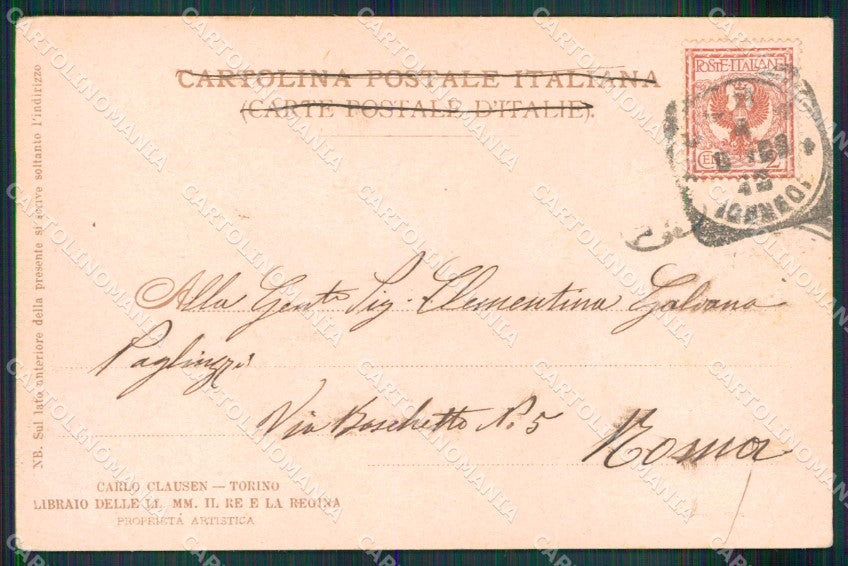 CARTOLINA POSTALE ITALIANA
(CARTE POSTALE D'ITALIE).
POSTE-ITALIANE
2
NB. Sul lato anteriore della presente si scrive soltanto l'indirizzo
Alla Gent. Sig. Clementina Galvano
Via Boschetto N. 5
Roma
CARLO CLAUSEN — TORINO
LIBRAIO DELLE LL. MM. IL RE E LA REGINA
PROPRIETÀ ARTISTICA
CARTOLINOMANIA